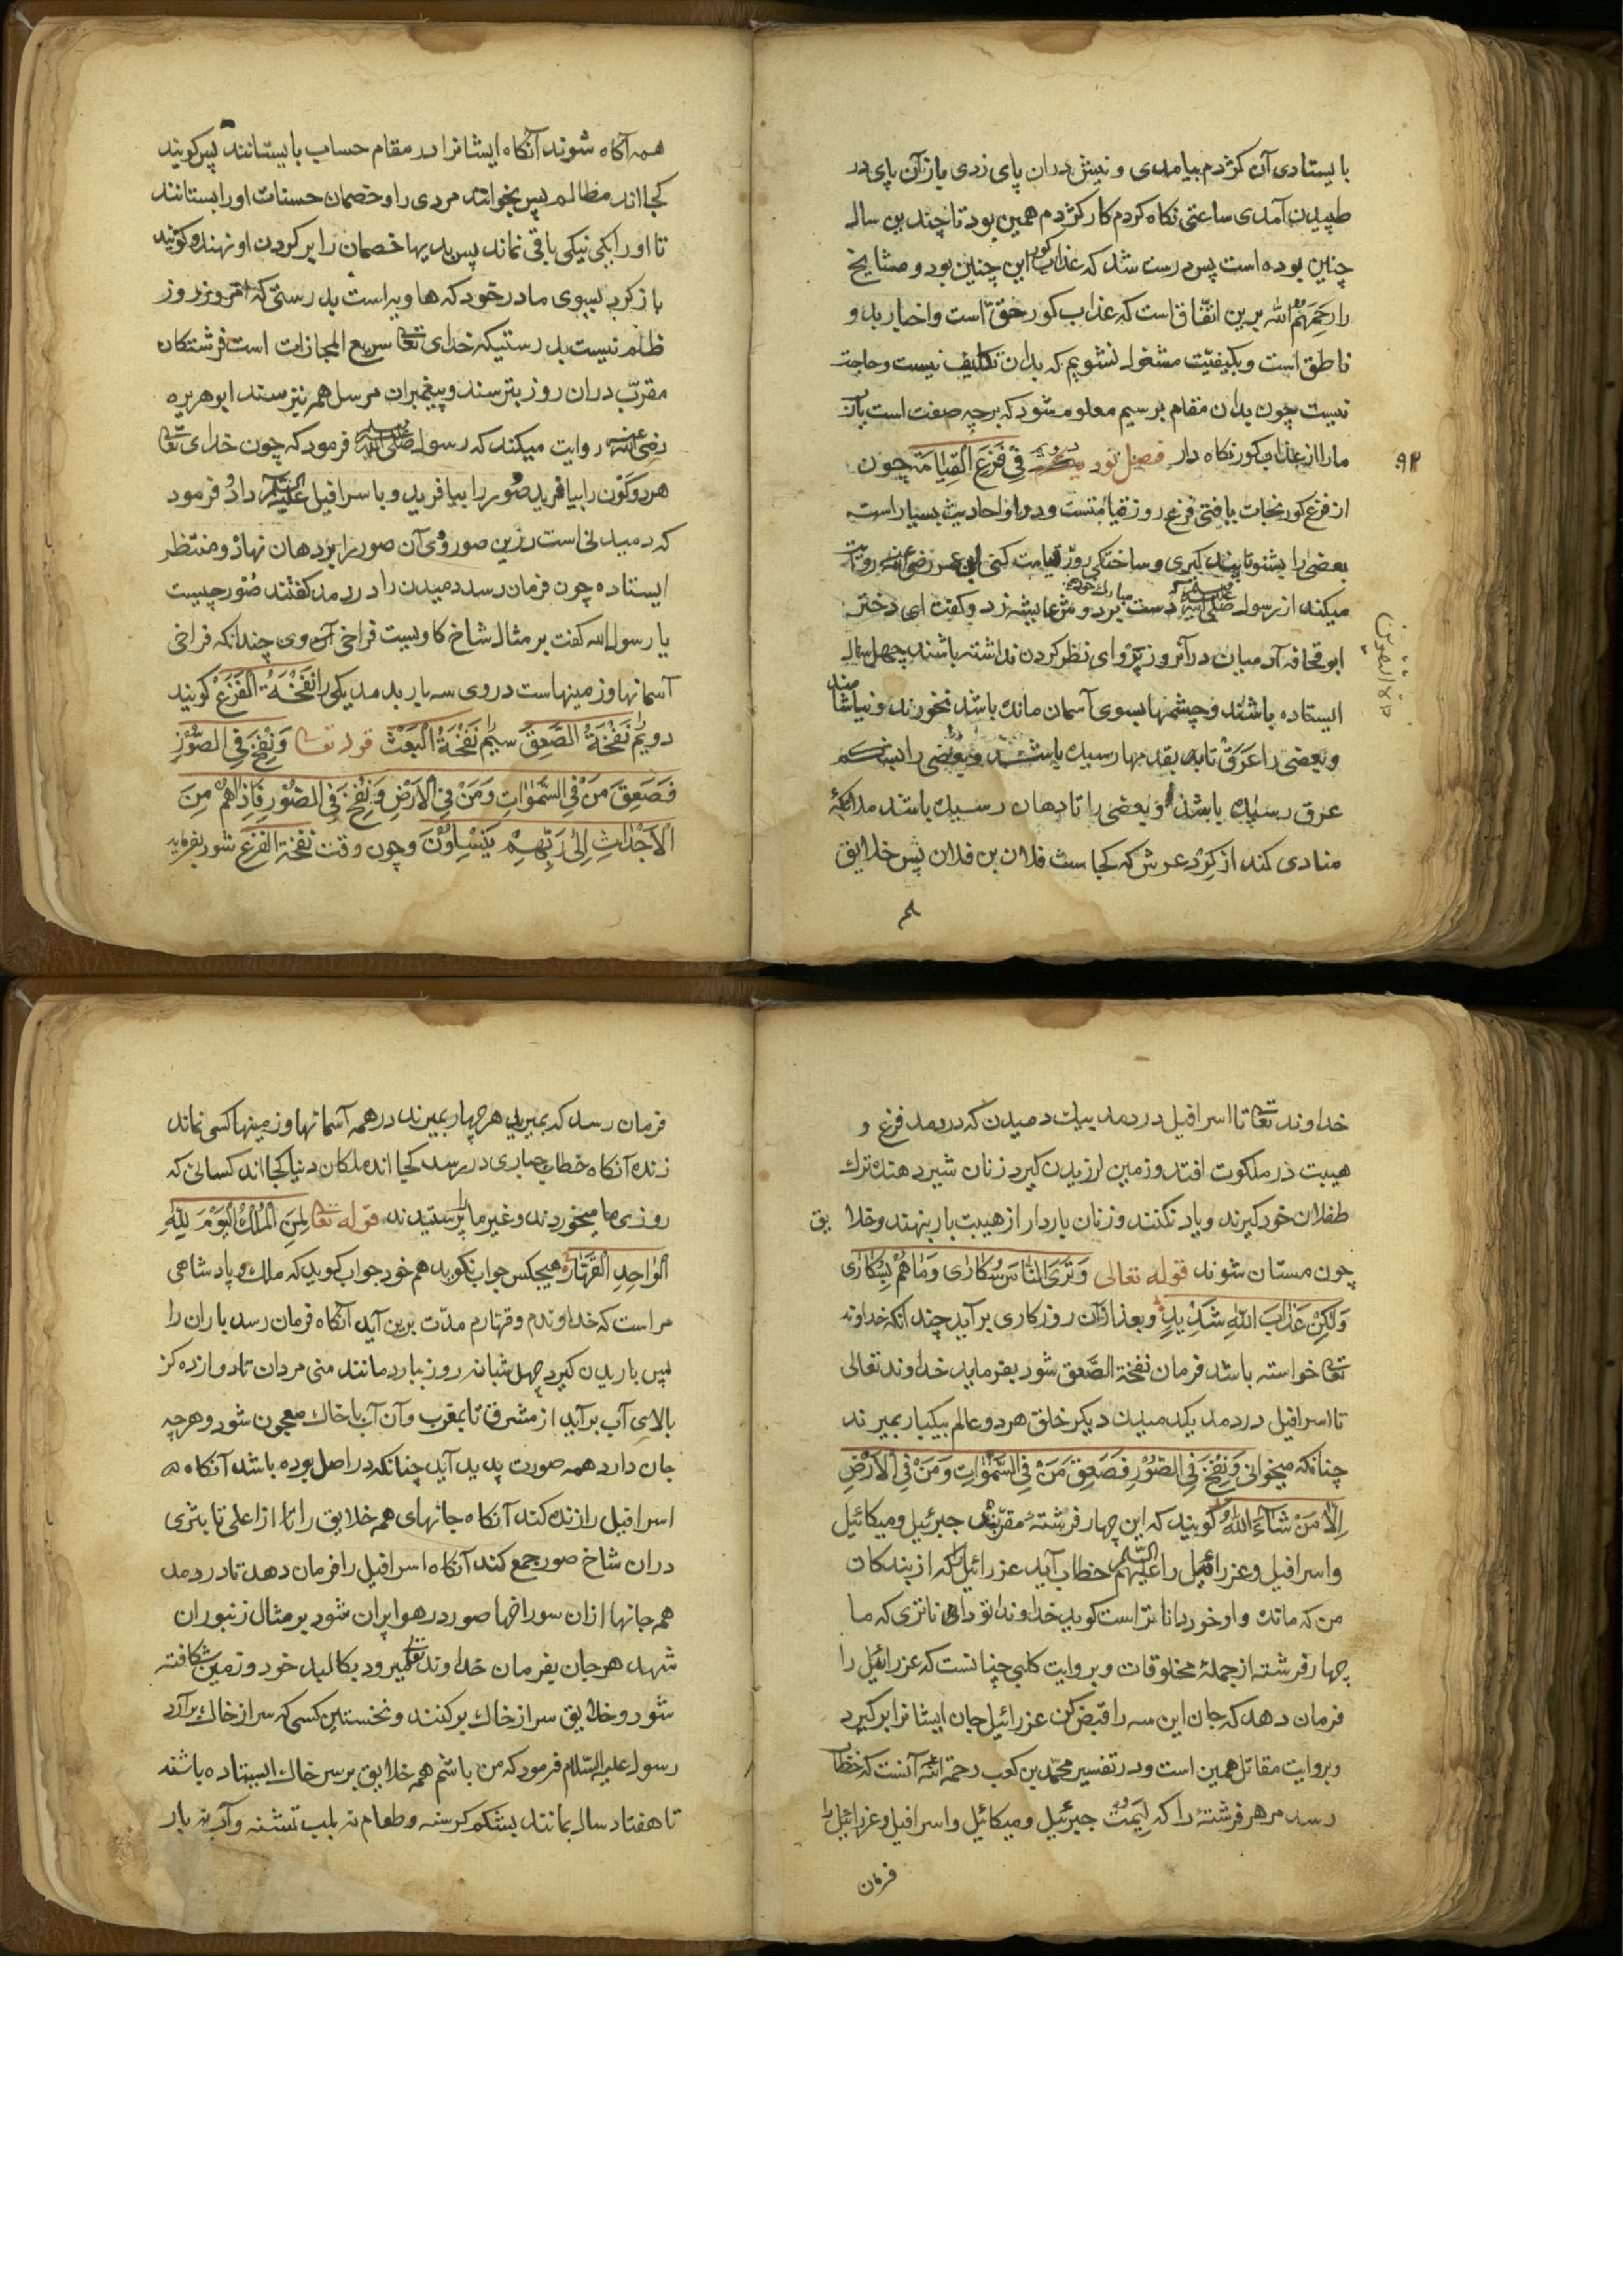 بایستادی آن کژدم بیامدی و نیش دران پای زدی بازآن پای در
طپیدن آمدی ساعتی نکاه کردم کار کژدم همین بود تا چندین سال
چنین بوده است پس درست شد که عذاب کور این چنین بود و مشایخ
را رَحِمَهُمُ الله برین اتّفاق است که عذاب کور حقّ است و اخبار بد و
ناطق است و بکیفیّت مشغول نشویم که بدان تکلیف نیست و حاجت
نیست چون بدان مقام برسیم معلوم شود که برچه صفت است یارَبّ
مارا از عذاب کور نکاه دار فصل نود دوم فِی فَزَعِ القِیٰامَةِ چون
۹۲
از فزع کور نجات یافتی فزع روز قیامتست و درو احادیث بسیار است
بعضی را بشنو تا پند کیری و ساختکی روز قیامت کنی ابن عمر رضی الله عنه روایت
میکند از رسول صلی الله علیه وسلم که دست مبارک خود بر دوش عایشه زد و کفت ای دختر
ابو قحافه آدمیان در آنروز پروای نظر کردن نداشته باشند چهل سال
ایستاده باشند و چشمها بسوی آسمان مانده باشد نخورند و نیاشامند
و بعضی را عَرَقْ تا به بقدمها رسیده باشد و بعضی را بشکم
عرق رسیده باشد و بعضی را تا دهان رسیده باشد ملائکهٔ
منادی کند از کِرْد عرش که کجاست فلان بن فلان پس خلایق
همه آکاه شوند آنکاه ایشانرا در مقام حساب بایستانند پس کویند
کجا اند مظالم پس بخوانند مردی را و خصمان حسنات او را بستانند
تا او را یکی نیکی باقی نماند پس بدیها خصمان را بر کردن او نهند و کویند
باز کرد بسوی مادر خود که هاویه است بدرستی که امروز روز
ظلم نیست بدرستیکه خدای تعا سریع المجازات است فرشتکان
مقرّب دران روز بترسند و پیغمبران مرسل هم بترسند ابو هریره
رضی الله عنه روایت میکند که رسول صلی الله علیه وسلم فرمود که چون خدای تعا
هر دو کَوْن را بیافرید صُور را بیافرید و باسرافیل علیه السلام داد و فرمود
که دمیدنی است درین صور وی آن صور را بر دهان نهاد و منتظر
ایستاده چون فرمان رسد دمیدن را در دمد کفتند صُور چیست
یا رسول الله کفت بر مثال شاخ کاویست فراخی آن وی چندانکه فراخی
آسمانها و زمینهاست در وی سه بار بدمد یکی را نَفْخَةُ الْفَزَعِ کویند
دویم را نَفْخَةُ الصَّعِق سیم را نَفْخَةُ الْبَعْث قوله تعا وَ نُفِخَ فِی الصُّوْرِ
فَصَعِقَ مَنْ فِی السَّمٰوٰاتِ وَ مَنْ فِی الْاَرْضِ وَ نُفِخَ فِی الصُّوْرِ فَاِذٰاهُمْ مِنَ
الْاَجْدٰاثِ اِلٰی رَبِّهِمْ یَنْسِلُوْنَ و چون وقت نفخة الفزع شود بفرماید
خداوند تعا تا اسرافیل در دمد بیك دمیدن که در دمد فزع و
هیبت در ملکوت افتد و زمین لرزیدن کیرد زنان شیر دهنده ترك
طفلان خود کیرند و یاد نکنند و زنان باردار از هیبت بار بنهند و خلایق
چون مستان شوند قوله تعالی وَ تَرَی النّٰاسَ سُکٰارٰی وَ مٰاهُمْ بِسُکٰارٰی
وَ لٰکِنَّ عَذٰابَ اللهِ شَدِیْدٌ و بعد ازآن روزکاری برآید چندانکه خداوند
تعا خواسته باشد فرمان نفخة الصَّعِق شود بفرماید خداوند تعالی
تا اسرافیل در دمد یك دمیدن دیکر خلق هر دو عالم بیکبار بمیرند
چنانکه میخوانی وَ نُفِخَ فِی الصُّوْرِ فَصَعِقَ مَنْ فِی السَّمٰوٰاتِ وَ مَنْ فِی الْاَرْضِ
اِلّٰا مَنْ شٰاءَ اللهُ کویند که این چهار فرشتهٔ مقرّبند جبرئیل و میکائیل
و اسرافیل و عزرائیل را علیهم السلام خطاب آید عزرائیل را که از بندکان
من که مانده و او خود داناتر است کوید خداوندا تو داناتری که ما
چهار فرشته از جملهٔ مخلوقات و بروایت کلبی چنانست که عزرائیل را
فرمان دهد که جان این سه را قبض کن عزرائیل جان ایشانرا برکیرد
و بروایت مقاتل همین است و در تفسیر محمّد بن کعب رحمة الله آنست که خطاب
رسد مر هر فرشتهٔ را که لِیَمُتْ جبرئیل و میکائیل و اسرافیل و عزرائیل را
فرمان
فرمان رسد که بمیرید هر چهار بمیرند در همه آسمانها و زمینها کسی نماند
زنده آنکاه خطاب جباری در رسد کجا اند ملکان دنیا کجا اند کسانی که
روزی ما میخوردند و غیر ما را پرستیدند قوله تعا لِمَنِ الْمُلْكُ الْیَوْمَ لِلّٰهِ
الْوٰاحِدِ الْقَهّٰارِ هیچکس جواب نکوید هم خود جواب کوید که ملك و پادشاهی
مراست که خداوندم و قهّارم مدّت برین آید آنکاه فرمان رسد باران را
پس باریدن کیرد چهل شبانه روز ببارد مانند منی مردان تا دوازده کز
بالای آب برآید از مشرق تا بمغرب و آن آب با خاك معجون شود و هرچه
جان دارد همه صورت پدید آید چنانکه در اصل بوده باشد آنکاه
اسرافیل را زنده کند آنکاه جانهای همه خلایق را از اعلی تا بثری
دران شاخ صور جمع کند آنکاه اسرافیل را فرمان دهد تا در دمد
همه جانها ازان سوراخها صور در هوا پران شود بر مثال زنبوران
شهد هر جان بفرمان خداوند تعا میرود بکالبد خود و زمین شکافته
شود و خلایق سر از خاك برکنند و نخستین کسی که سر از خاك برآرد
رسول علیه السّلام فرمود که من باشم همه خلایق بر سر خاك ایستاده باشند
تا هفتاد سال بمانند بشکم کرسنه و طعام نه بلب تشنه و آب نه بار